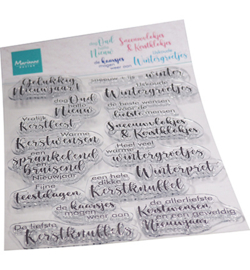 Marianne
Oud
Nieuw
Sneeuwvlokjes
& Kerstklokjes
de kaarsjes
Wintergroetjes
Gelukkig
Nieuwjaar!
winter
Oud
Nieuw
de beste wensen
voor de
liefste mensen
Vrolijk
Kerstfeest
Warme
Kerstwensen
Sneeuwvlokjes
& Kerstklokjes
sprankelend
bruisend
Nieuwjaar
Heel veel
warme
wintergroetjes
Winterpret
Fijne
feestdagen
een hele
dikke
Kerstknuffel
de kaarsjes
mogen weer aan
Dikke
Kerstknuffels
de allerliefste
Kerstwensen
en een geweldig
Nieuwjaar